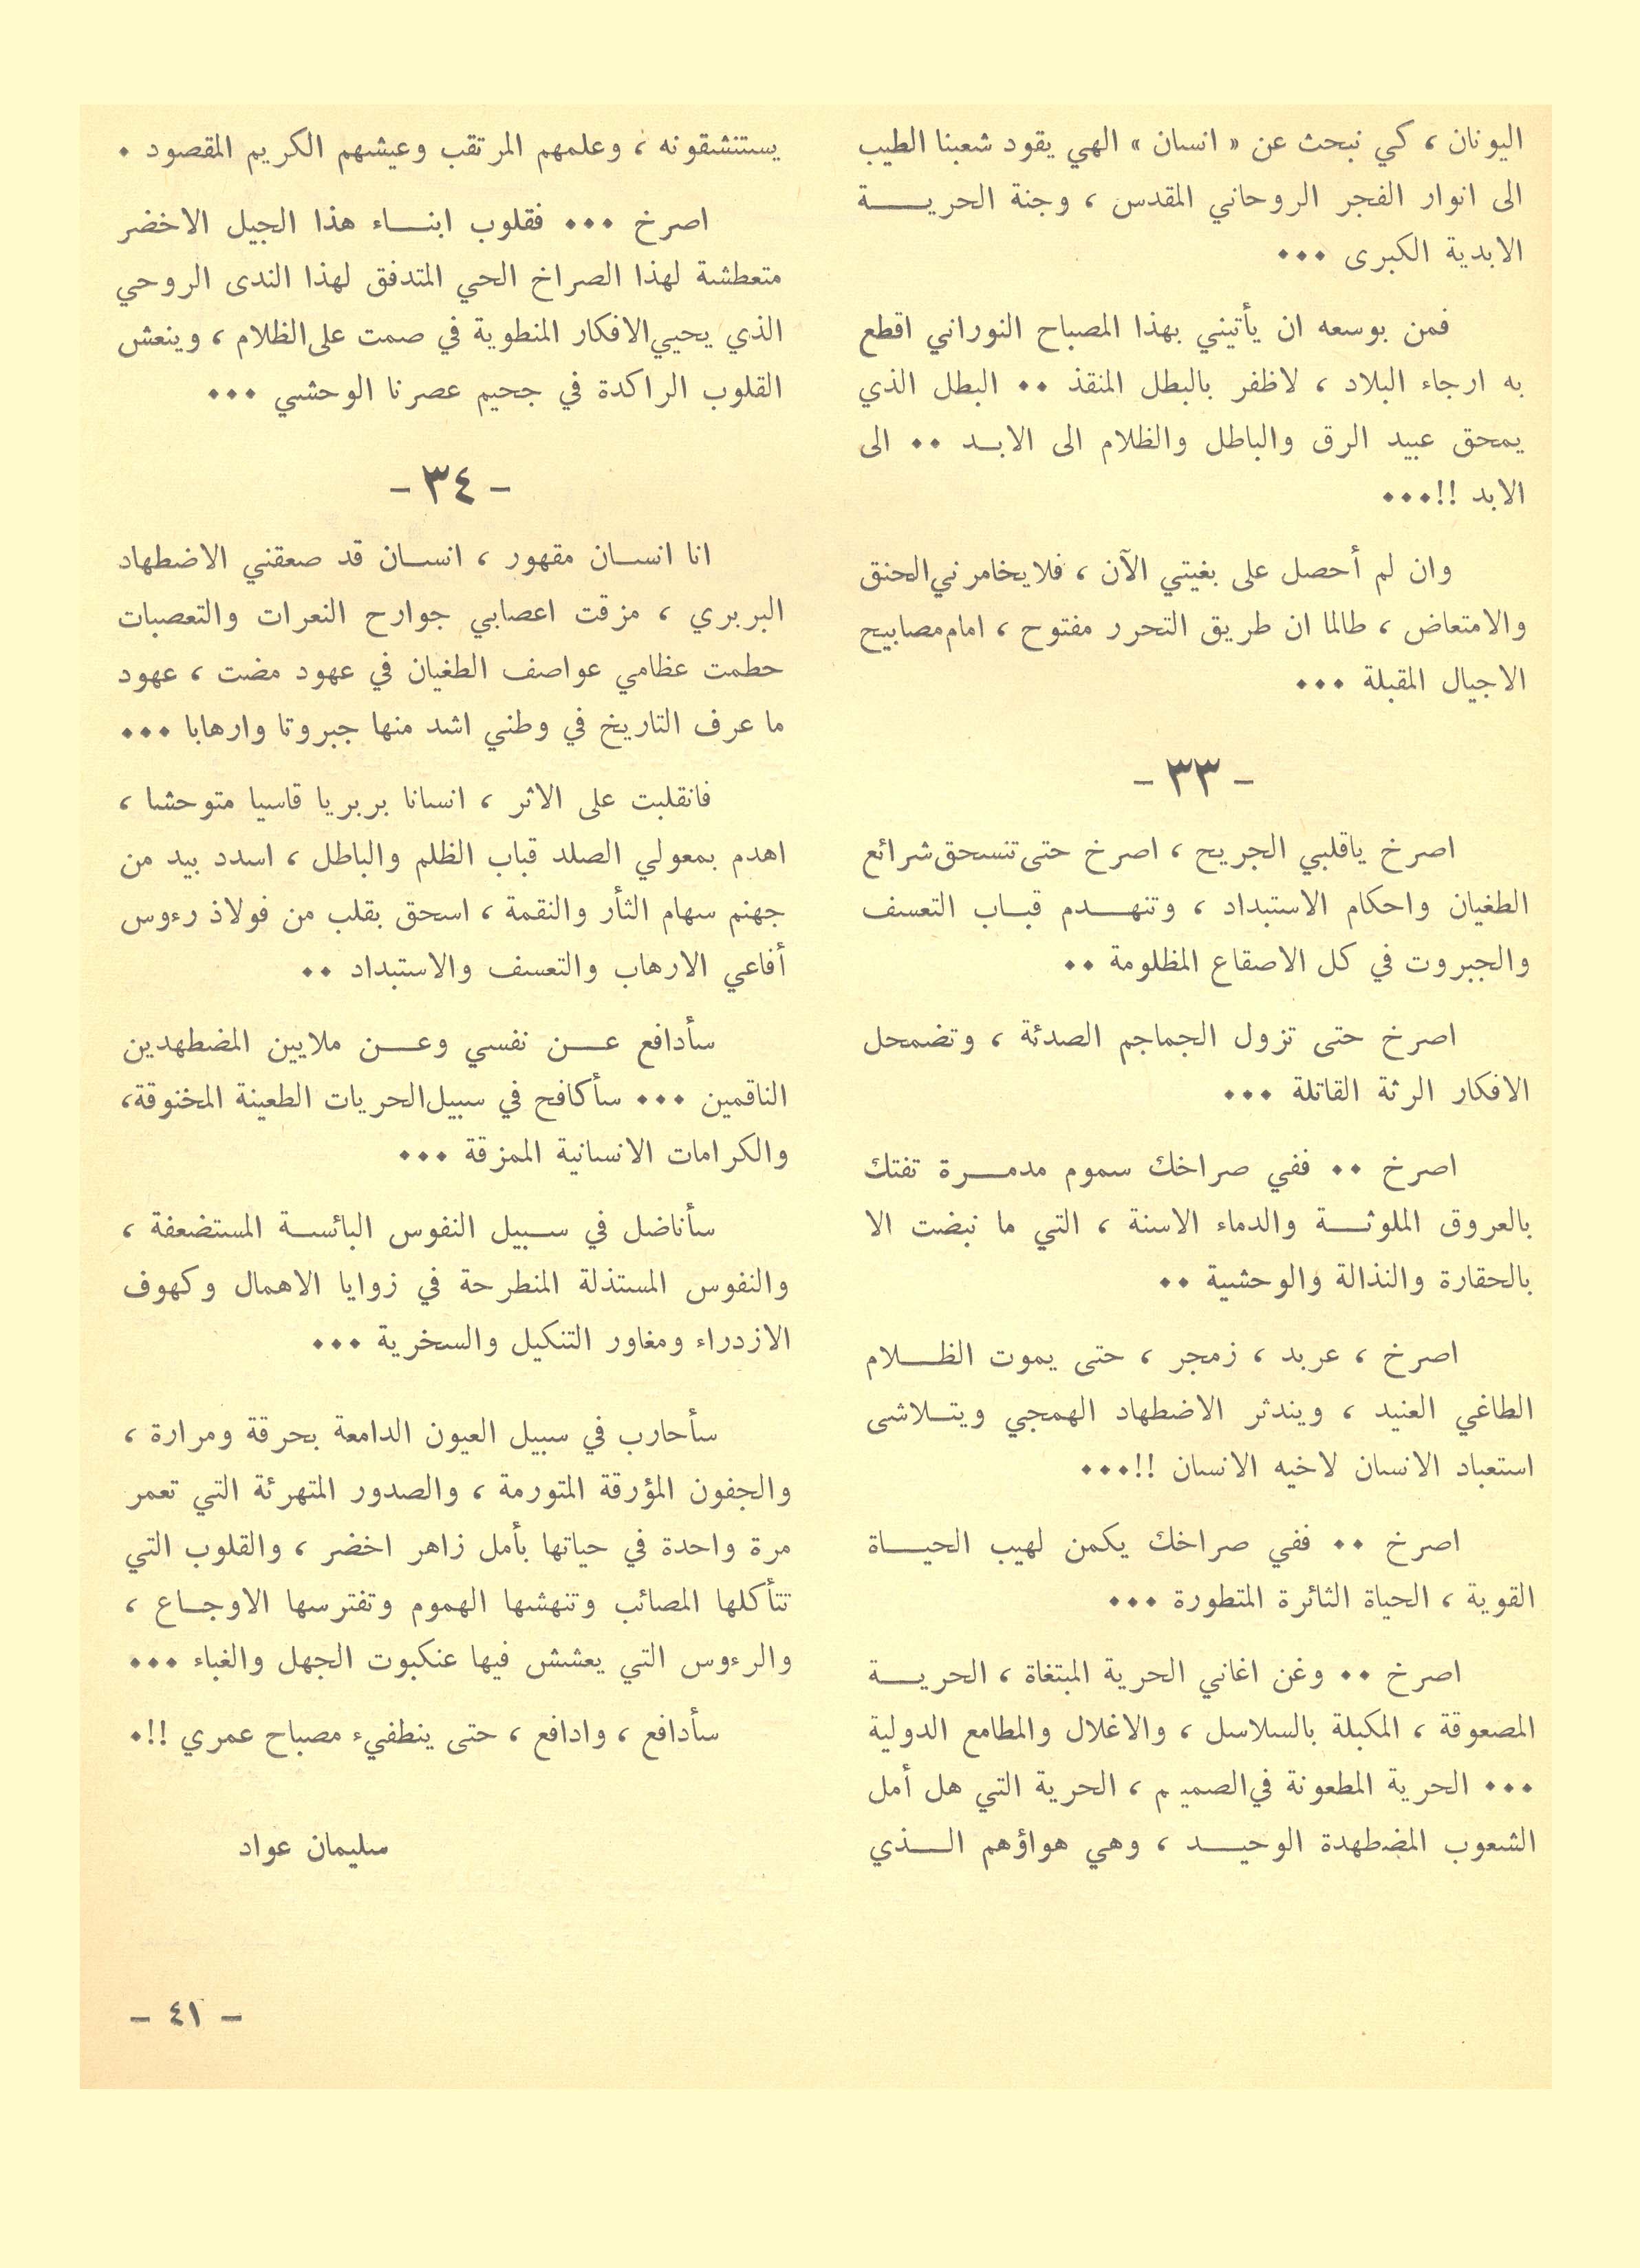 اليونان ، كي نبحث عن « انسان » الهي يقود شعبنا الطيب
الى انوار الفجر الروحاني المقدس ، وجنة الحرية
الابدية الكبرى ...
فمن بوسعه ان يأتيني بهذا المصباح النوراني اقطع
به ارجاء البلاد ، لاظفر بالبطل المنقذ .. البطل الذي
يمحق عبيد الرق والباطل والظلام الى الابد .. الى
الابد !!...
وان لم أحصل على بغيتي الآن ، فلا يخامرني الحنق
والامتعاض ، طالما ان طريق التحرر مفتوح ، امام مصابيح
الاجيال المقبلة ...
- ٣٣ -
اصرخ ياقلبي الجريح ، اصرخ حتى تنسحق شرائع
الطغيان واحكام الاستبداد ، وتنهدم قباب التعسف
والجبروت في كل الاصقاع المظلومة ..
اصرخ حتى تزول الجماجم الصدئة ، وتضمحل
الافكار الرثة القاتلة ...
اصرخ .. ففي صراخك سموم مدمرة تفتك
بالعروق الملوثة والدماء الاسنة ، التي ما نبضت الا
بالحقارة والنذالة والوحشية ..
اصرخ ، عربد ، زمجر ، حتى يموت الظلام
الطاغي العنيد ، ويندثر الاضطهاد الهمجي ويتلاشى
استعباد الانسان لاخيه الانسان !!...
اصرخ .. ففي صراخك يكمن لهيب الحياة
القوية ، الحياة الثائرة المتطورة ...
اصرخ .. وغن اغاني الحرية المبتغاة ، الحرية
المصعوقة ، المكبلة بالسلاسل ، والاغلال والمطامع الدولية
... الحرية المطعونة في الصميم ، الحرية التي هل أمل
الشعوب المضطهدة الوحيد ، وهي هواؤهم الذي
يستنشقونه ، وعلمهم المرتقب وعيشهم الكريم المقصود .
اصرخ ... فقلوب ابناء هذا الجيل الاخضر
متعطشة لهذا الصراخ الحي المتدفق لهذا الندى الروحي
الذي يحيي الافكار المنطوية في صمت على الظلام ، وينعش
القلوب الراكدة في جحيم عصرنا الوحشي ...
- ٣٤ -
انا انسان مقهور ، انسان قد صعقني الاضطهاد
البربري ، مزقت اعصابي جوارح النعرات والتعصبات
حطمت عظامي عواصف الطغيان في عهود مضت ، عهود
ما عرف التاريخ في وطني اشد منها جبروتا وارهابا ...
فانقلبت على الاثر ، انسانا بربريا قاسيا متوحشا ،
اهدم بمعولي الصلد قباب الظلم والباطل ، اسدد بيد من
جهنم سهام الثأر والنقمة ، اسحق بقلب من فولاذ رءوس
أفاعي الارهاب والتعسف والاستبداد ..
سأدافع عن نفسي وعن ملايين المضطهدين
الناقمين ... سأكافح في سبيل الحريات الطعينة المخنوقة،
والكرامات الانسانية الممزقة ...
سأناضل في سبيل النفوس البائسة المستضعفة ،
والنفوس المستذلة المنطرحة في زوايا الاهمال وكهوف
الازدراء ومغاور التنكيل والسخرية ...
سأحارب في سبيل العيون الدامعة بحرقة ومرارة ،
والجفون المؤرقة المتورمة ، والصدور المتهرئة التي تعمر
مرة واحدة في حياتها بأمل زاهر اخضر ، والقلوب التي
تتأكلها المصائب وتنهشها الهموم وتفترسها الاوجاع ،
والرءوس التي يعشش فيها عنكبوت الجهل والغباء ...
سأدافع ، وادافع ، حتى ينطفيء مصباح عمري !!.
سليمان عواد
- ٤١ -